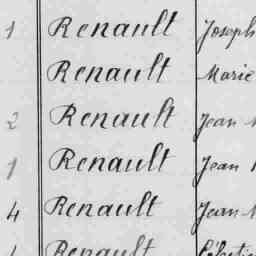 1 Renault Joseph
Renault Marie
2 Renault Jean
1 Renault Jean
4 Renault Jean
Renault